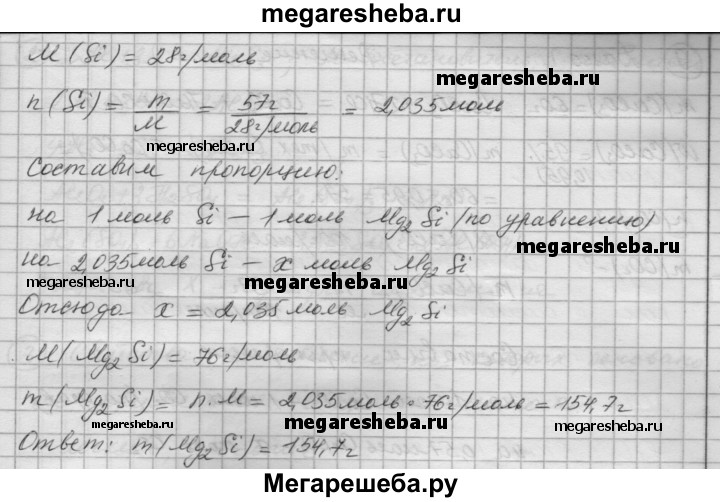 megaresheba.ru
M (Si) = 28г/моль
megaresheba.ru
n (Si) = m/M = 57г/28г/моль = 2,035моль
megaresheba.ru
megaresheba.ru
Составим пропорцию:
на 1 моль Si – 1 моль Mg2Si (по уравнению)
megaresheba.ru
на 2,035моль Si – x моль Mg2Si
megaresheba.ru
megaresheba.ru
Отсюда x = 2,035 моль Mg2Si
M (Mg2Si) = 76г/моль
megaresheba.ru
m (Mg2Si) = n.M = 2,035моль · 76г/моль = 154,7г
megaresheba.ru
Ответ: m (Mg2Si) = 154,7г
megaresheba.ru
Мегарешеба.ру